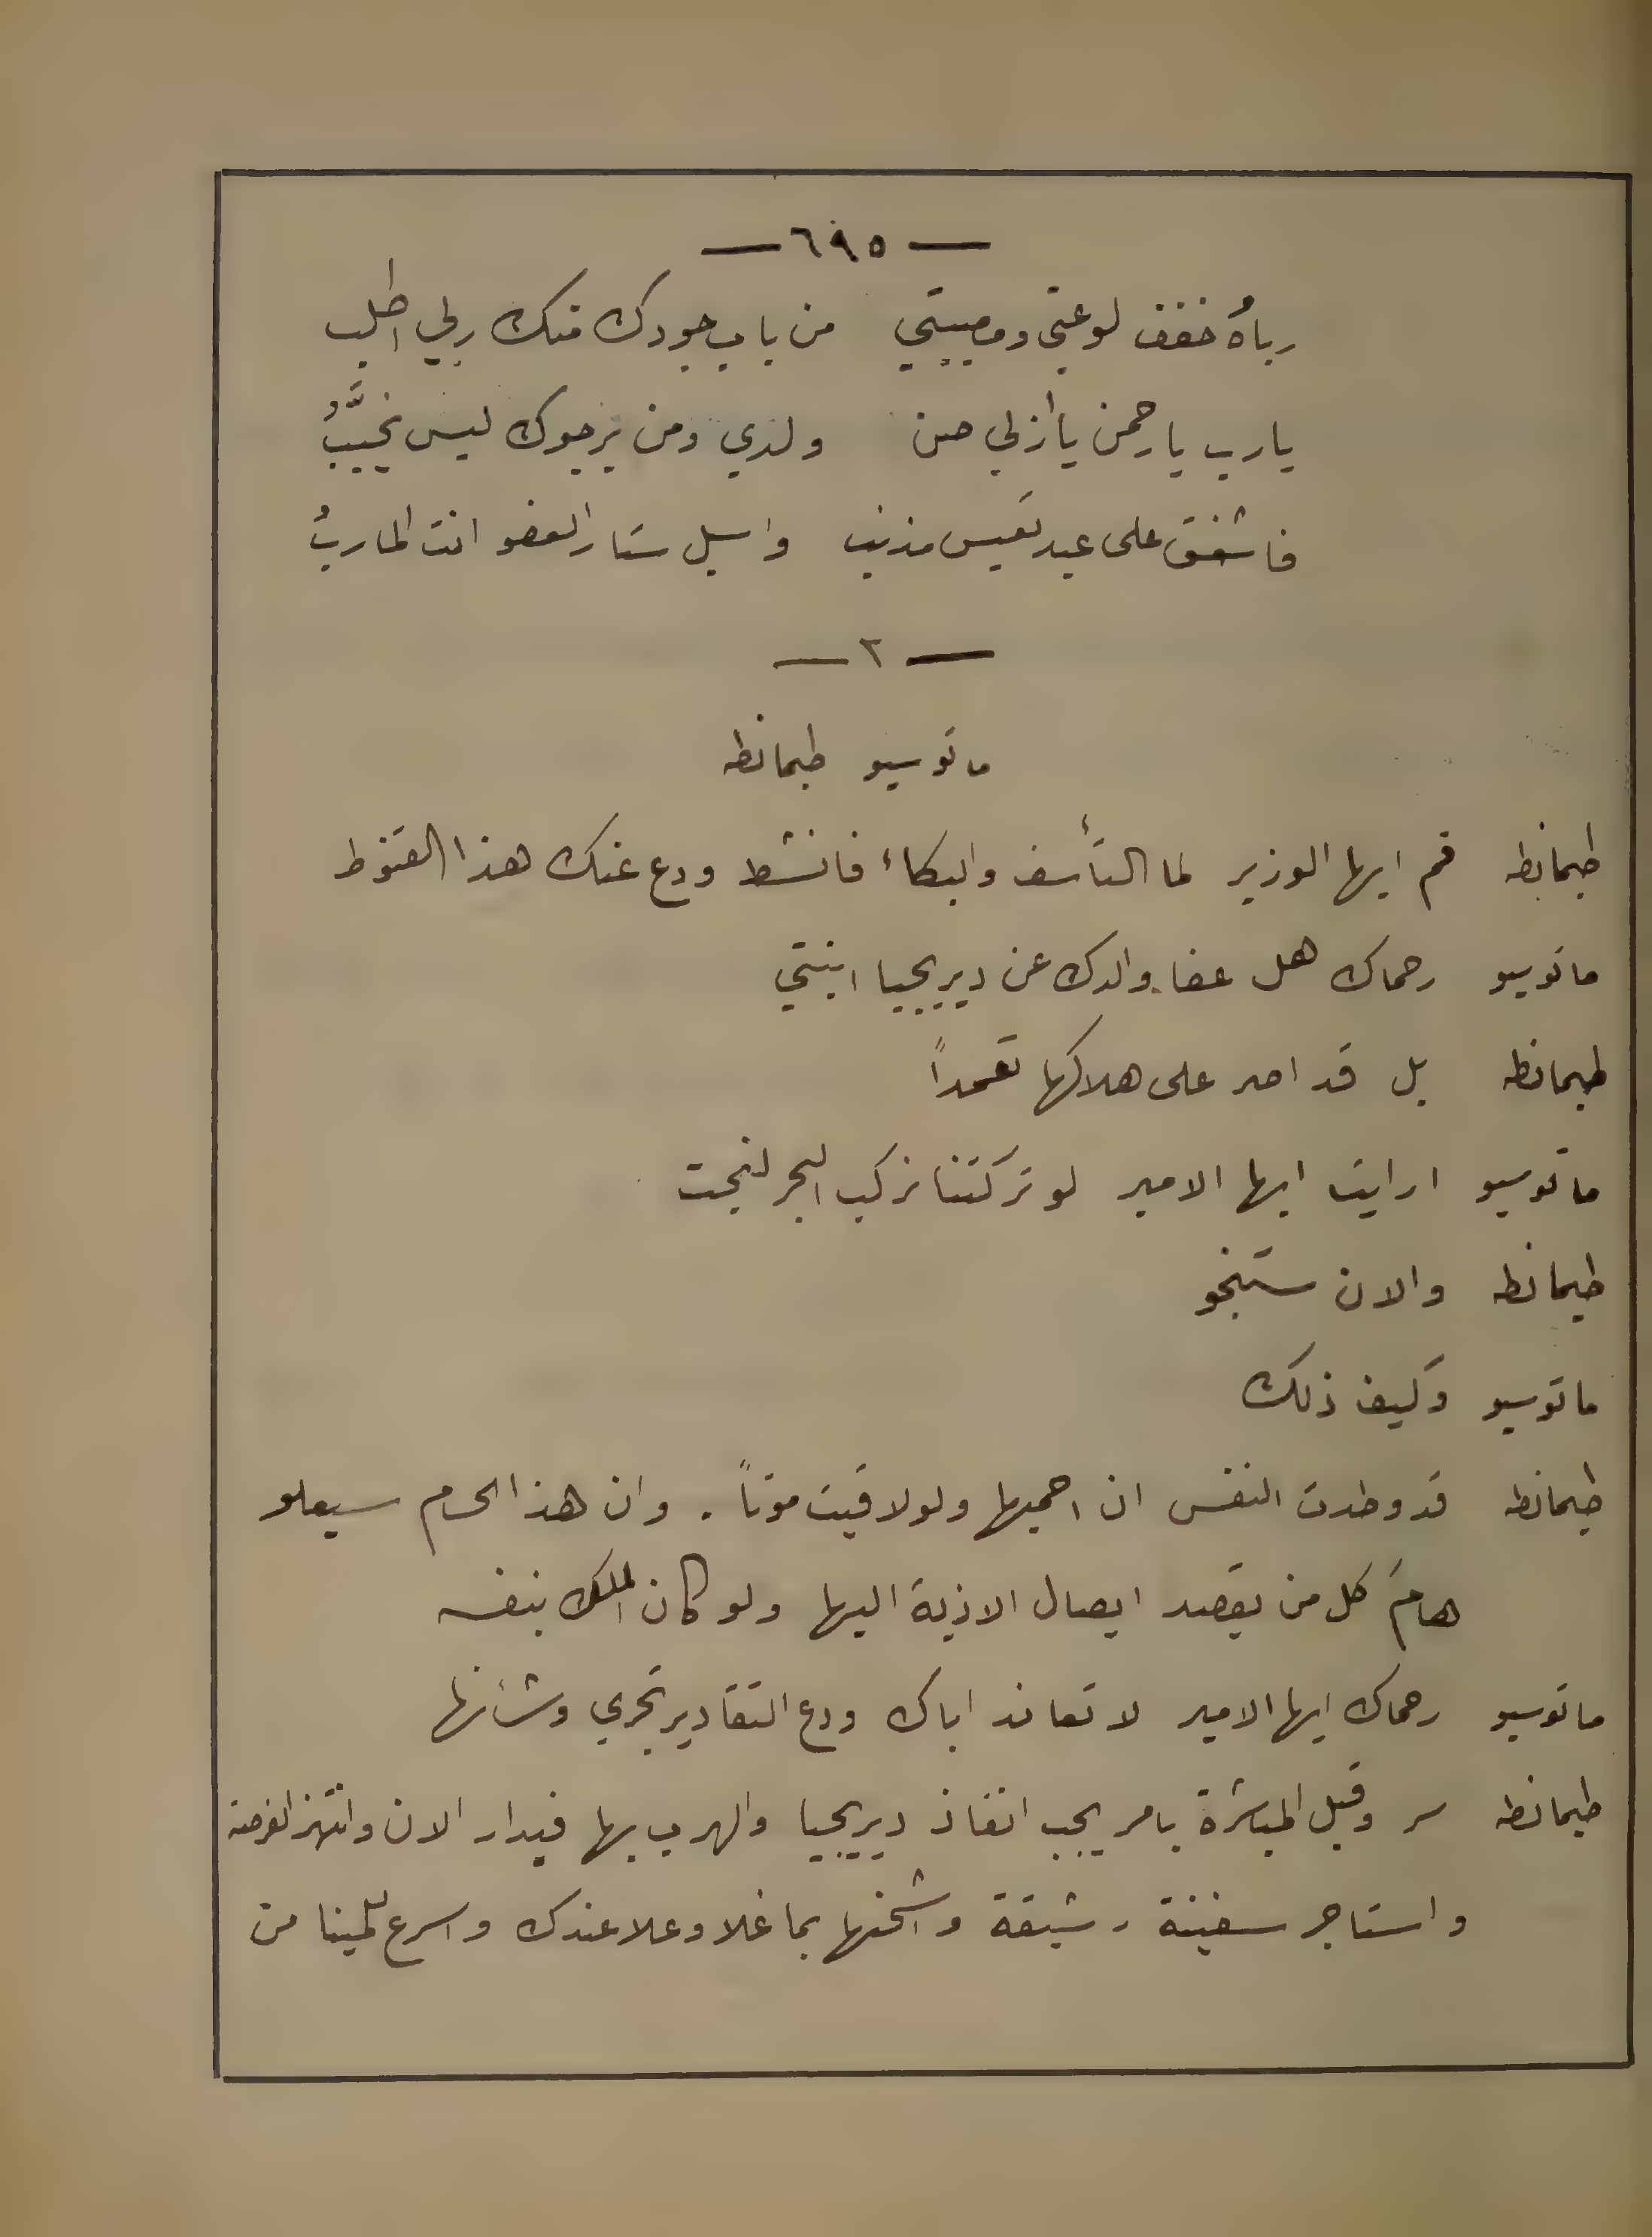 — ٦٩٥ —
رباهُ خفف لوعتي ومصيبتي من باب جودك منك ربي اطلب
يارب يارحمن يا أزلي صن ولدي ومن يرجوك ليس يخيَّبُ
فاشفق على عبد تعيس مذنب واسبل ستار العفو انت الماربُ
— ٢ —
ماتوسيو طيمانطه
طيمانطه قم ايها الوزير لما التأسف والبكاء فانشط ودع عنك هذا القنوط
ماتوسيو رحماك هل عفا والدك عن ديريجيا ابنتي
طيمانطه بل قد اصر على هلاكها تعمداً
ماتوسيو ارايت ايها الامير لو تركتنا نركب البحر لنجت
طيمانطه والان ستنجو
ماتوسيو وكيف ذلك
طيمانطه قد وطدت النفس ان احميها ولو لاقيت موتاً . وان هذا الحسام سيعلو
هامَ كل من يقصد ايصال الاذية اليها ولو كان الملك بنفسه
ماتوسيو رحماك ايها الامير لا تعاند اباك ودع التقادير تجري وشأنها
طيمانطه سر وقبل المباشرة بامر يجب انقاذ ديريجيا والهرب بها فبدار الان وانتهز الفرصة
واستاجر سفينة رشيقة واشحنها بما غلا وعلا عندك واسرع للمينا من